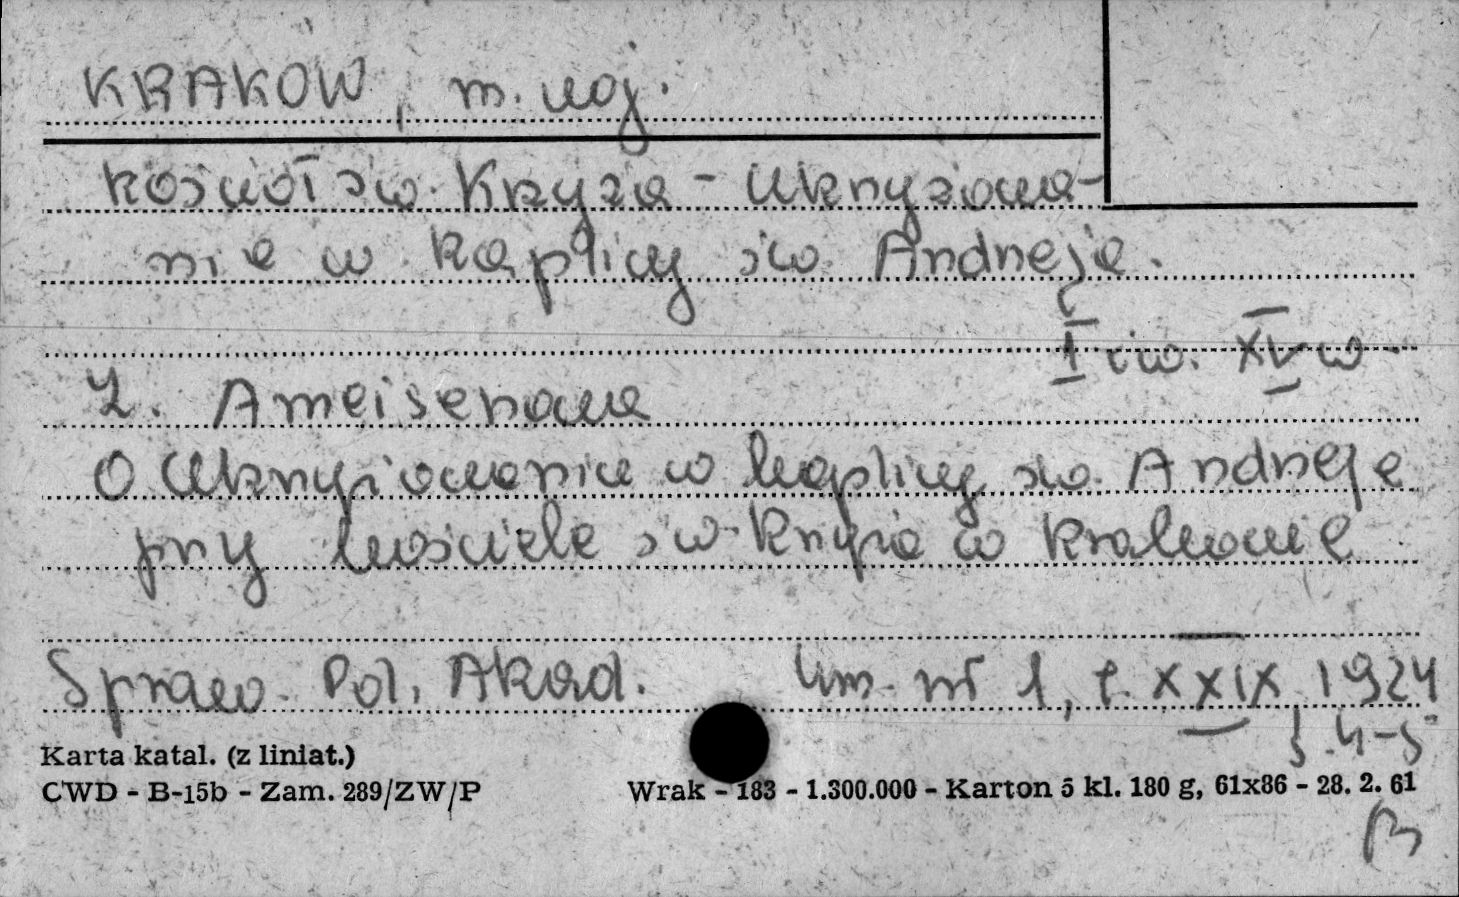 KRAKÓW, m. woj.
kościół św. Krzyża - Ukrzyżowa-
nie w kaplicy św. Andrzeja.
I ćw. XV w.
Z. Ameisenowa
O Ukrzyżowaniu w kaplicy św. Andrzeja
przy kościele św. Krzyża w Krakowie
Spraw. Pol. Akad. Um. nr 1, t. XXIX 1924
s. 4-5
Karta katal. (z liniat.)
CWD - B-15b - Zam. 289/ZW/P Wrak - 183 - 1.300.000 - Karton 5 kl. 180 g, 61x86 - 28. 2. 61